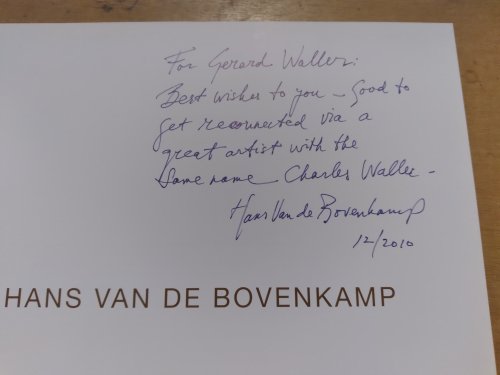 For Gerard Waller:
Best wishes to you – Good to
get reconnected via a
great artist with the
Same name Charles Waller –
Hans Van de Bovenkamp
12/2010
HANS VAN DE BOVENKAMP